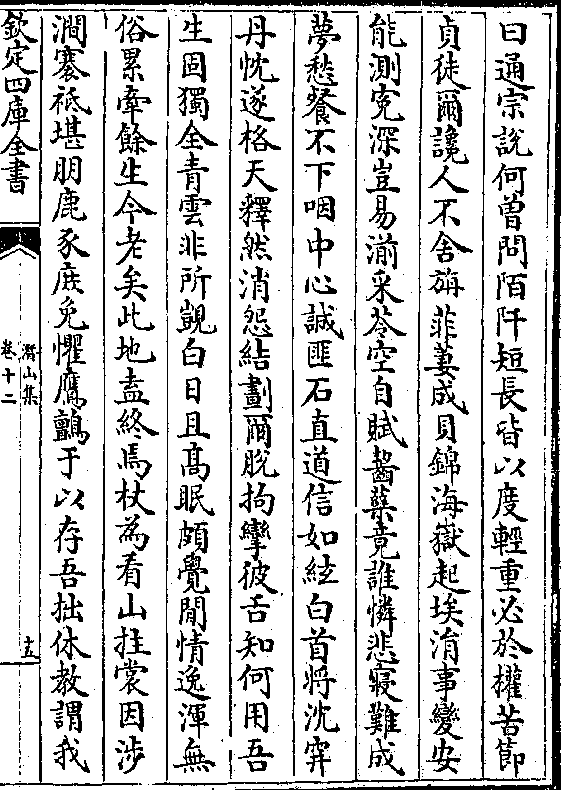 曰通宗說何曾問陌阡短長皆以度輕重必於權苦節
貞徒爾讒人不舍旃菲萋成貝錦海嶽起埃涓事變安
能測寃深豈易湔采苓空自賦齧蘗竟誰憐悲寢難成
夢愁餐不下咽中心誠匪石直道信如絃白首將沈穽
丹忱遂格天釋然消怨結劃爾脫拘攣彼舌知何用吾
生固獨全青雲非所覬白日且髙眠頗覺閒情逸渾無
俗累牽餘生今老矣此地盍終焉杖為看山拄裳因涉
澗褰祗堪朋鹿豕庶免懼鷹鸇于以存吾拙休教謂我
欽定四庫全書
潛山集
卷十二
十五